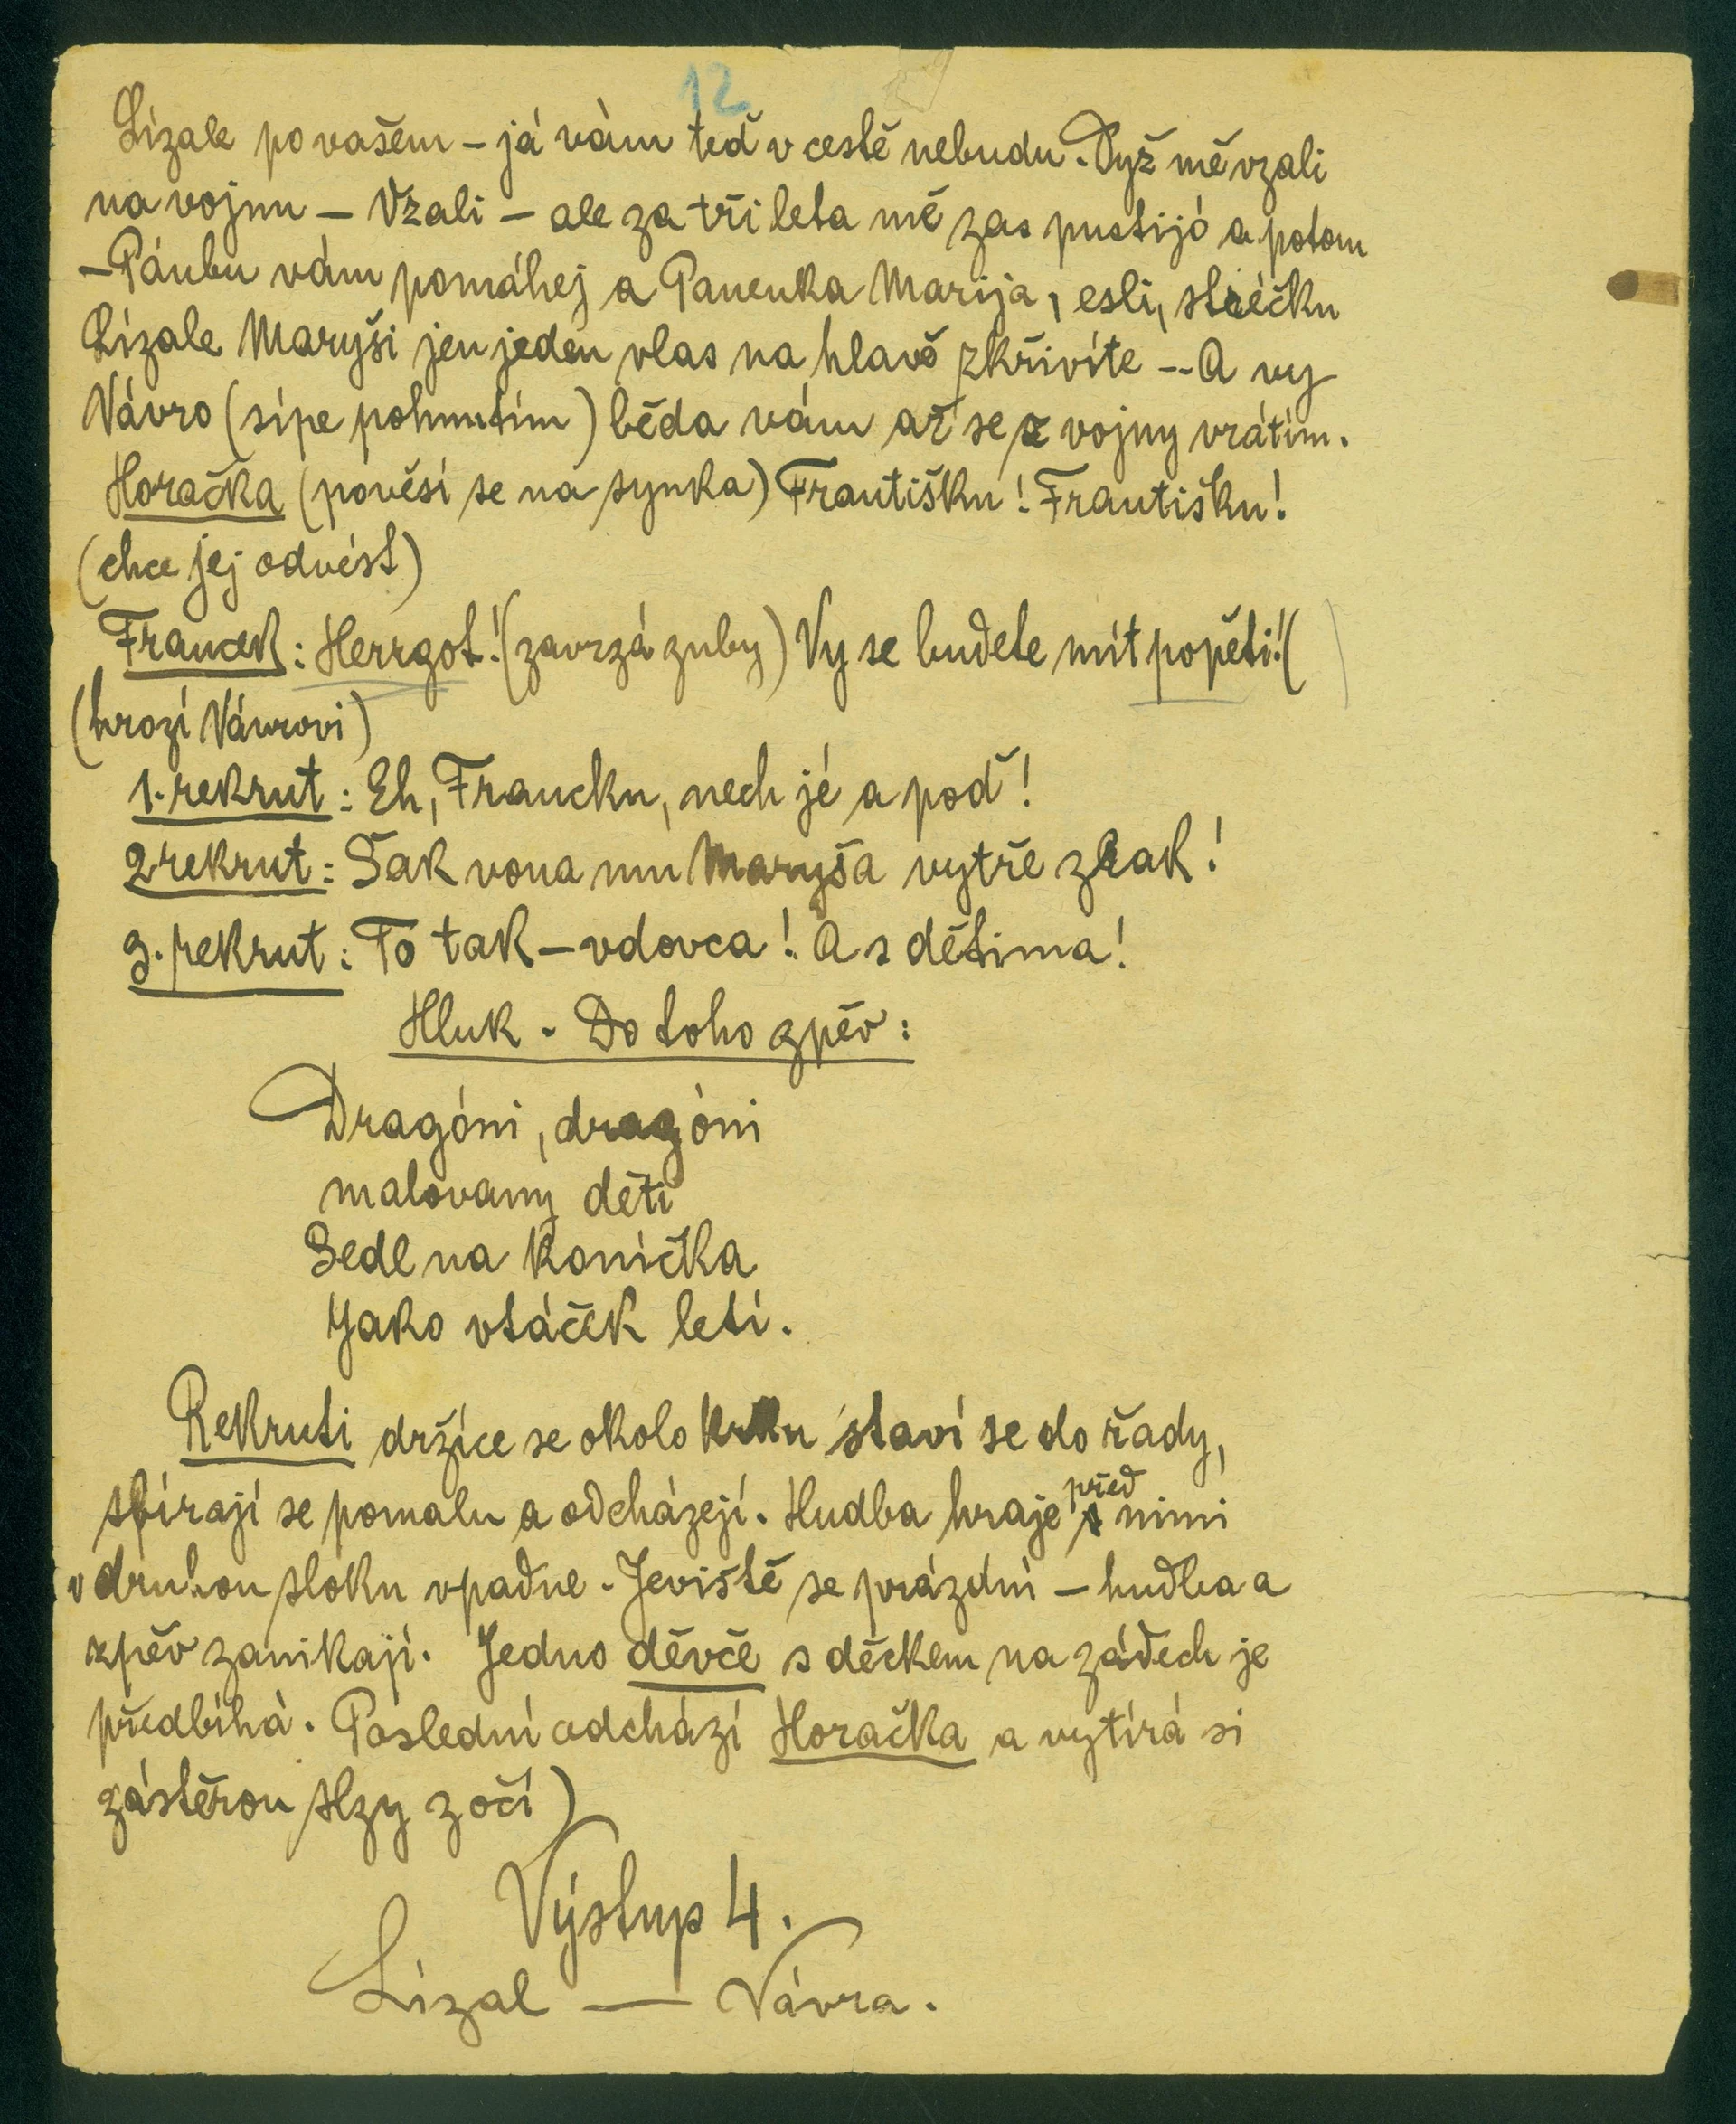 12
Lízale po vašem – já vám teď v cestě nebudu. Dyž mě vzali
na vojnu – Vzali – ale za tři leta mě zas pustijó a potom
– Pánbu vám pomáhej a Panenka Marija, esli, stréčku
Lízale Maryši jen jeden vlas na hlavě zkřivíte -- A vy
Vávro (sípe pohnutím) běda vám až se z vojny vrátím.
Horačka (pověsí se na synka) Františku! Františku!
(chce jej odvést)
Francek: Herrgot! (zavrzá zuby) Vy se budete mít popěti! (
(hrozí Vávrovi)
1. rekrut: Eh, Francku, nech jé a poď!
2 rekrut: Šak vona mu Maryša vytře zrak!
3. rekrut: To tak – vdovca! A s dětima!
Hluk - Do toho zpěv:
Dragóni, dragóni
malovany děti
Sedl na konička
Jako vtáček letí.
Rekruti držíce se okolo krku staví se do řady,
sbírají se pomalu a odcházejí. Hudba hraje před nimi
v druhou sloku vpadne. Jeviště se prázdní – hudba a
zpěv zanikají. Jedno děvče s děckem na zádech je
předbíhá. Poslední odchází Horačka a vytírá si
zástěrou slzy z očí)
Výstup 4.
Lízal — Vávra.